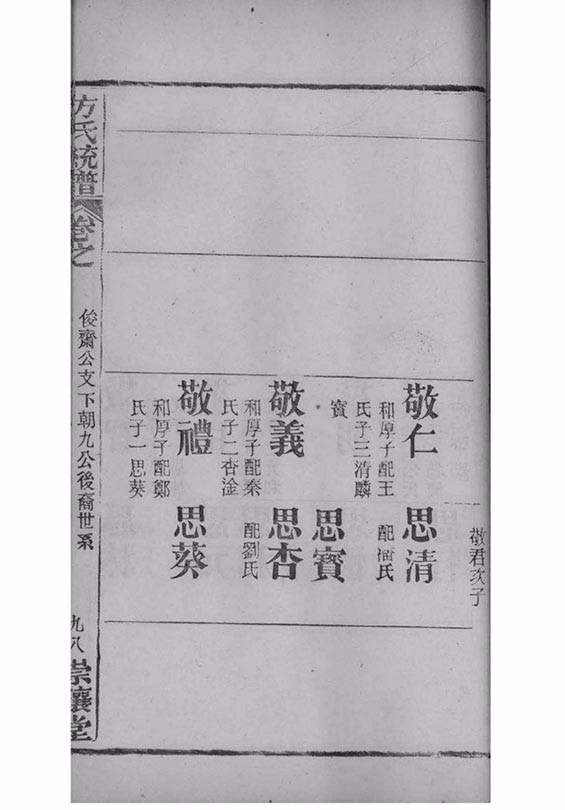 敬君次子
敬仁
和厚子配王
氏子三清麟
寶
思清
配潘氏
思寶
敬義
和厚子配秦
氏子二杏淦
思杏
配劉氏
敬禮
和厚子配鄭
氏子一思葵
思葵
方氏統譜
卷之
俊齋公支下朝九公後裔世系
九八
堂